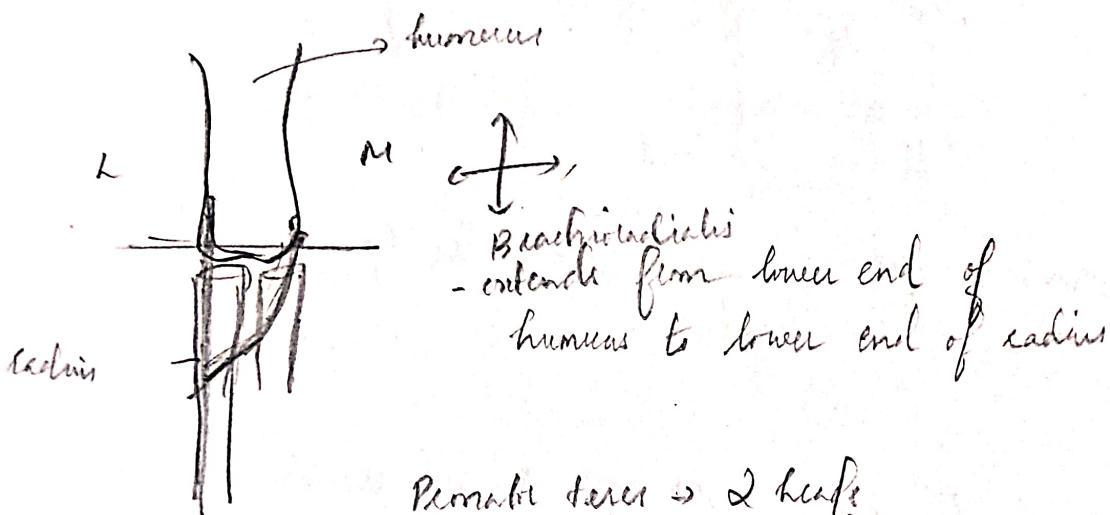 humerus
L
M
Brachioradialis
- extends from lower end of
humerus to lower end of radius
radius
Pronator teres → 2 heads